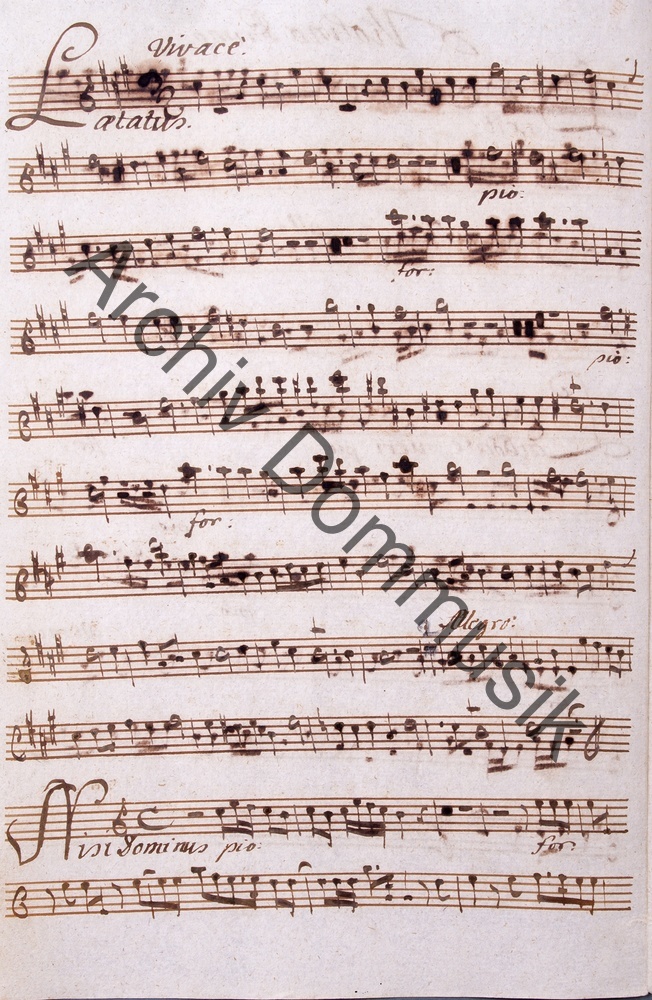 Vivace.
Lætatus.
pio:
for:
pio:
for:
Allegro:
Nisi Dominus pio:
for:
Archiv Dommusik